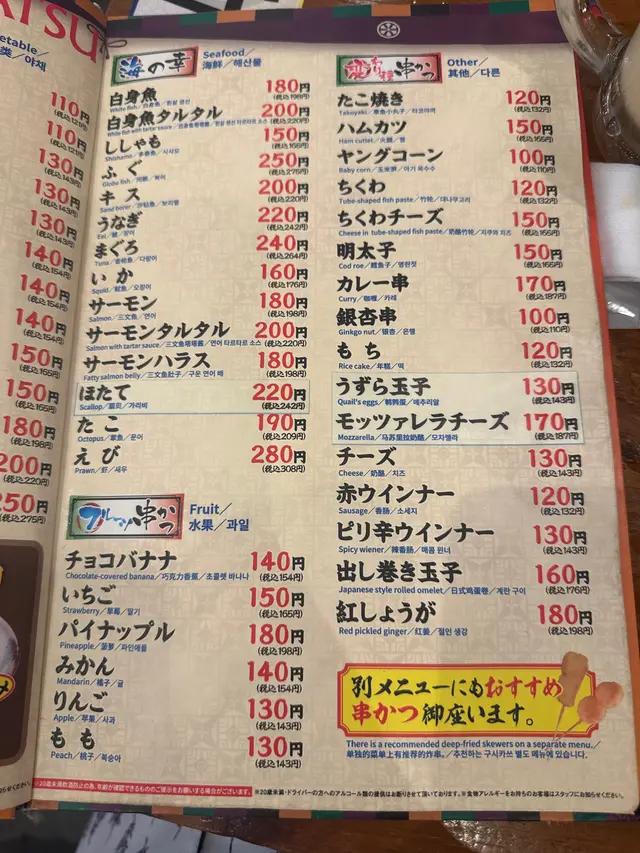 ATSU
etable/
类/야채
110円
(税込121円)
110円
(税込121円)
130円
(税込143円)
130円
(税込143円)
130円
(税込143円)
140円
(税込154円)
140円
(税込154円)
140円
(税込154円)
150円
(税込165円)
150円
(税込165円)
180円
(税込198円)
200円
(税込220円)
250円
(税込275円)
海の幸
Seafood/
海鲜/해산물
白身魚 180円
White fish/白身鱼/흰살 생선 (税込198円)
白身魚タルタル 200円
White fish with tartar sauce/白身鱼塔塔酱/흰살 생선 타르타르 소스 (税込220円)
ししゃも 150円
Shishamo/多春鱼/시샤모 (税込165円)
ふぐ 250円
Globe fish/河豚/복어 (税込275円)
キス 200円
Sand borer/沙鮻鱼/보리멸 (税込220円)
うなぎ 220円
Eel/鳗/장어 (税込242円)
まぐろ 240円
Tuna/金枪鱼/다랑어 (税込264円)
いか 160円
Squid/鱿鱼/오징어 (税込176円)
サーモン 180円
Salmon/三文鱼/연어 (税込198円)
サーモンタルタル 200円
Salmon with tartar sauce/三文鱼塔塔酱/연어 타르타르 소스 (税込220円)
サーモンハラス 180円
Fatty salmon belly/三文鱼肚子/구운 연어 배 (税込198円)
ほたて 220円
Scallop/扇贝/가리비 (税込242円)
たこ 190円
Octopus/章鱼/문어 (税込209円)
えび 280円
Prawn/虾/새우 (税込308円)
フルーツ串かつ
Fruit/
水果/과일
チョコバナナ 140円
Chocolate-covered banana/巧克力香蕉/초콜렛 바나나 (税込154円)
いちご 150円
Strawberry/草莓/딸기 (税込165円)
パイナップル 180円
Pineapple/菠萝/파인애플 (税込198円)
みかん 140円
Mandarin/橘子/귤 (税込154円)
りんご 130円
Apple/苹果/사과 (税込143円)
もも 130円
Peach/桃子/복숭아 (税込143円)
変わり種串かつ
Other/
其他/다른
たこ焼き 120円
Takoyaki/章鱼小丸子/타코야끼 (税込132円)
ハムカツ 150円
Ham cutlet/火腿/햄 (税込165円)
ヤングコーン 100円
Baby corn/玉米笋/아기 옥수수 (税込110円)
ちくわ 120円
Tube-shaped fish paste/竹轮/대나무고리 (税込132円)
ちくわチーズ 150円
Cheese in tube-shaped fish paste/奶酪竹轮/치쿠와 치즈 (税込165円)
明太子 150円
Cod roe/鳕鱼子/명란젓 (税込165円)
カレー串 170円
Curry/咖喱/카레 (税込187円)
銀杏串 100円
Ginkgo nut/银杏/은행 (税込110円)
もち 120円
Rice cake/年糕/떡 (税込132円)
うずら玉子 130円
Quail's eggs/鹌鹑蛋/메추리알 (税込143円)
モッツァレラチーズ 170円
Mozzarella/马苏里拉奶酪/모차렐라 (税込187円)
チーズ 130円
Cheese/奶酪/치즈 (税込143円)
赤ウインナー 120円
Sausage/香肠/소세지 (税込132円)
ピリ辛ウインナー 130円
Spicy wiener/辣香肠/매콤 윈너 (税込143円)
出し巻き玉子 160円
Japanese style rolled omelet/日式鸡蛋卷/계란 구이 (税込176円)
紅しょうが 180円
Red pickled ginger/红姜/절인 생강 (税込198円)
別メニューにもおすすめ
串かつ御座います。
There is a recommended deep-fried skewers on a separate menu./
单独的菜单上有推荐的炸串。/추천하는 구시카쓰 별도 메뉴에 있습니다.
※20歳未満飲酒防止の為、年齢が確認できるもののご提示をお願いする場合がございます。 ※20歳未満・ドライバーの方へのアルコール類の提供はお断りさせて頂いております。※食物アレルギーをお持ちのお客様はスタッフにお知らせください。